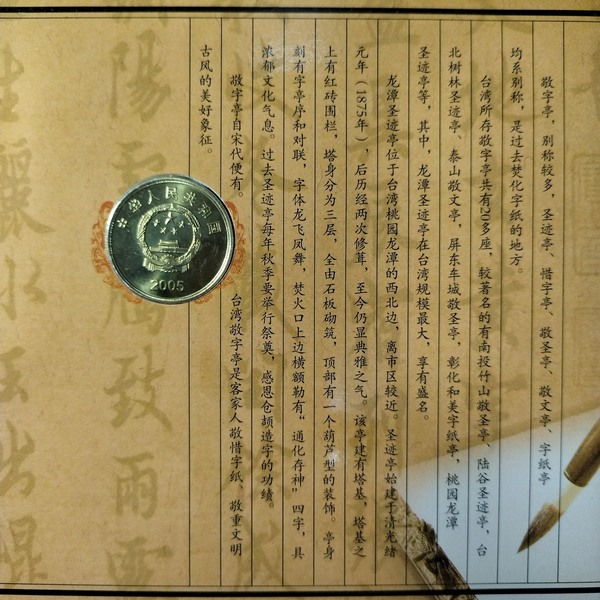 敬字亭，别称较多，圣迹亭、惜字亭、敬圣亭、敬文亭、字纸亭
均系别称，是过去焚化字纸的地方。
台湾所存敬字亭共有20多座，较著名的有南投竹山敬圣亭、陆谷圣迹亭，台
北树林圣迹亭、泰山敬文亭，屏东车城敬圣亭、彰化和美字纸亭，桃园龙潭
圣迹亭等，其中，龙潭圣迹亭在台湾规模最大，享有盛名。
龙潭圣迹亭位于台湾桃园龙潭的西北边，离市区较近。圣迹亭始建于清光绪
元年（1875年），后历经两次修葺，至今仍显典雅之气。该亭建有塔基，塔基之
上有红砖围栏，塔身分为三层，全由石板砌筑，顶部有一个葫芦型的装饰。亭身
刻有字亭序和对联，字体龙飞凤舞，焚火口上边横额勒有“通化存神”四字，具
浓郁文化气息。过去圣迹亭每年秋季要举行祭奠，感恩仓颉造字的功绩。
敬字亭自宋代便有。台湾敬字亭是客家人敬惜字纸、敬重文明
古风的美好象征。
中华人民共和国
2005